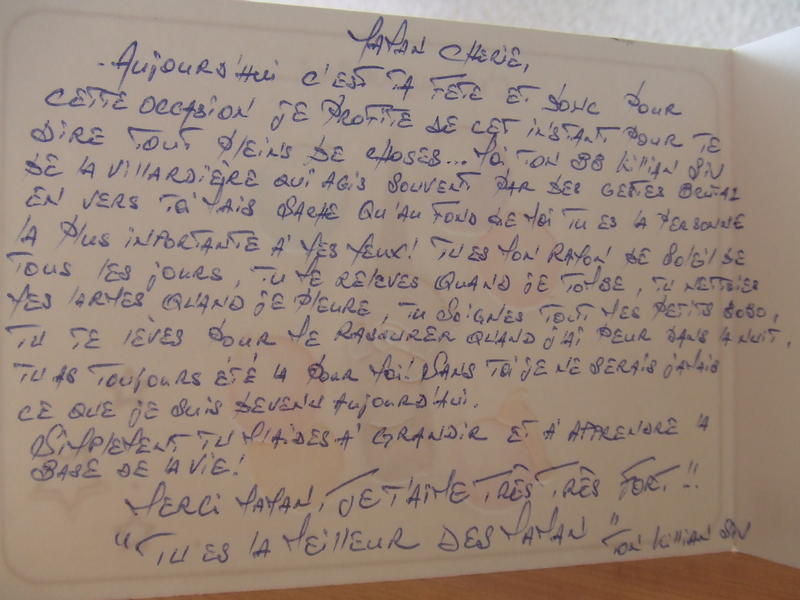 MAMAN CHERIE,
- AUJOURD'HUI C'EST TA FETE ET DONC POUR
CETTE OCCASION JE PROFITE DE CET INSTANT POUR TE
DIRE TOUT PLEINS DE CHOSES... MOI TON BB KILLIAN SIN
DE LA VILLARDIERE QUI AGIS SOUVENT PAR DES GESTES
EN VERS TOI MAIS SACHE QU'AU FOND DE MOI TU ES LA PERSONNE
LA PLUS IMPORTANTE A' MES YEUX! TU ES MON RAYON DE SOLEIL DE
TOUS LES JOURS, TU ME RELEVES QUAND JE TOMBE, TU NETTOIES
MES LARMES QUAND JE PLEURE, TU SOIGNES TOUT MES PETITS BOBO,
TU TE LÈVES POUR ME RASSURER QUAND J'AI PEUR DANS LA NUIT,
TU AS TOUJOURS ÉTÉ LA POUR MOI! SANS TOI JE NE SERAIS JAMAIS
CE QUE JE SUIS DEVENU AUJOURD'HUI.
SIMPLEMENT TU M'AIDES A' GRANDIR ET A' APPRENDRE LA
BASE DE LA VIE!
MERCI MAMAN, JE T'AIME TRÈS TRÈS FORT!!
"TU ES LA MEILLEUR DES MAMAN" TON KILLIAN SIN